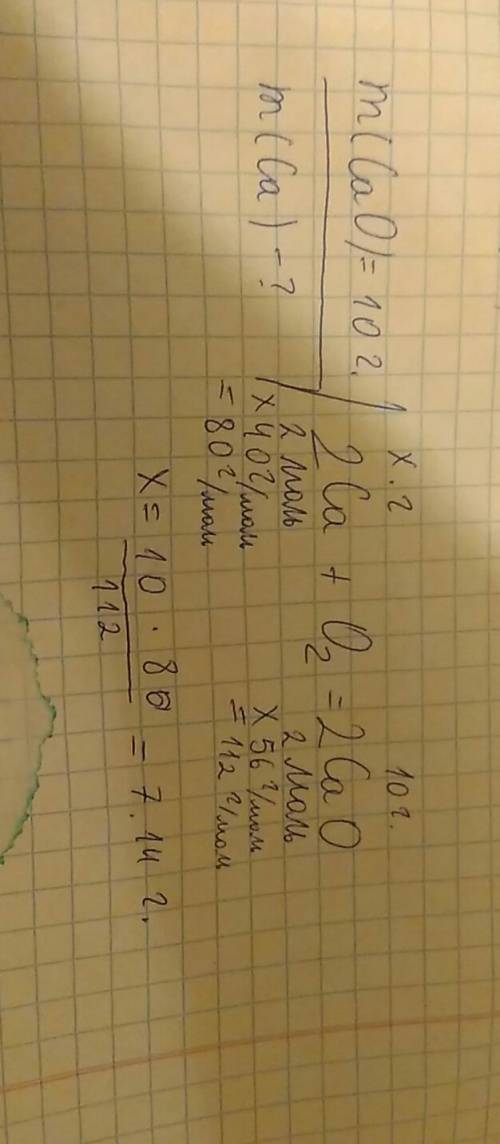 m(CaO)=10г.
m(Ca)-?
х.г 10г.
2Ca + O₂ = 2CaO
2 моль 2 моль
х 40г/моль х 56г/моль
= 80г/моль = 112г/моль
x = 10 · 80 / 112 = 7.14 г.